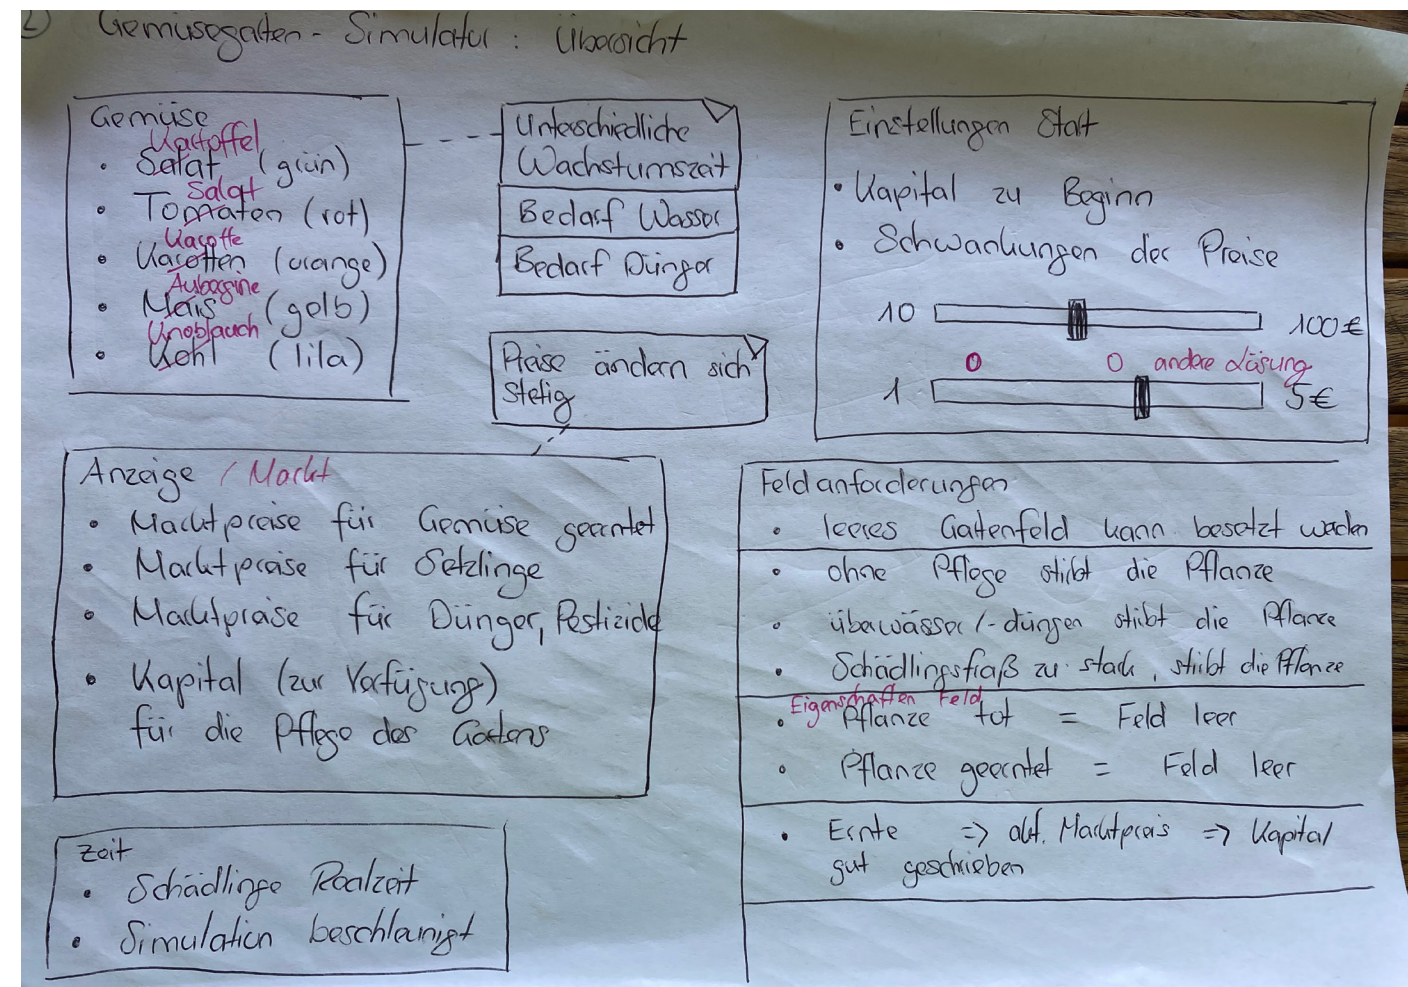 2)
Gemüsegarten - Simulator : Übersicht
Gemüse
Kartoffel
• Salat (grün)
Salat
• Tomaten (rot)
Karotte
• Karotten (orange)
Aubergine
• Mais (gelb)
Knoblauch
• Kohl (lila)
Unterschiedliche
Wachstumszeit
Bedarf Wasser
Bedarf Dünger
Preise ändern sich
stetig
Einstellungen Start
• Kapital zu Beginn
• Schwankungen der Preise
10 100€
O O andere Lösung
1 5€
Anzeige / Markt
• Marktpreise für Gemüse geerntet
• Marktpreise für Setzlinge
• Marktpreise für Dünger, Pestizide
• Kapital (zur Verfügung)
für die Pflege des Gartens
Feldanforderungen
• leeres Gartenfeld kann besetzt werden
• ohne Pflege stirbt die Pflanze
• überwässer/-düngen stirbt die Pflanze
• Schädlingsfraß zu stark, stirbt die Pflanze
Eigenschaften Feld
• Pflanze tot = Feld leer
• Pflanze geerntet = Feld leer
• Ernte => akt. Marktpreis => Kapital
gut geschrieben
Zeit
• Schädlinge Realzeit
• Simulation beschleunigt